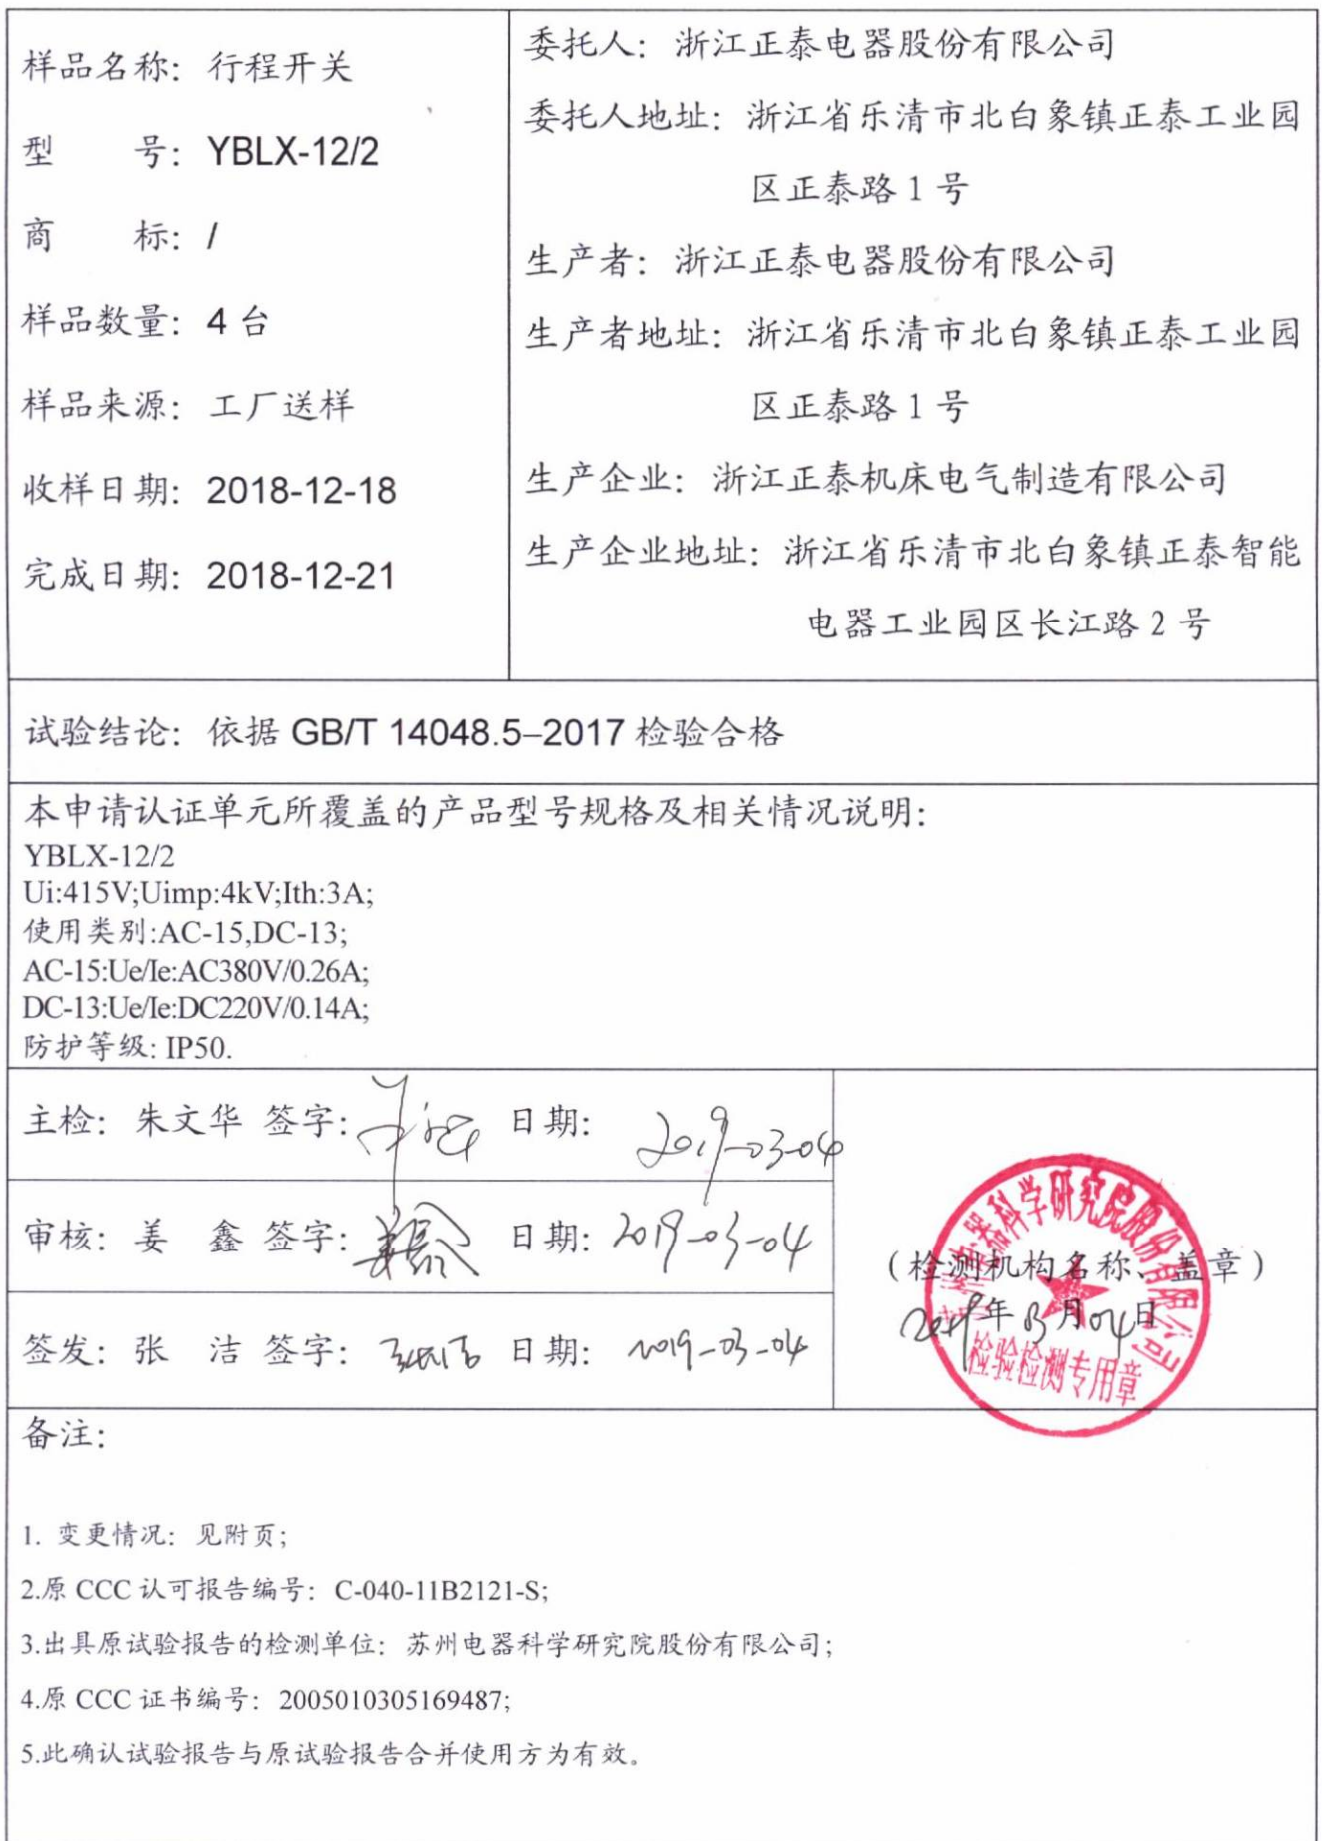 样品名称：行程开关
型　　号：YBLX-12/2
商　　标：/
样品数量：4 台
样品来源：工厂送样
收样日期：2018-12-18
完成日期：2018-12-21
委托人：浙江正泰电器股份有限公司
委托人地址：浙江省乐清市北白象镇正泰工业园
区正泰路 1 号
生产者：浙江正泰电器股份有限公司
生产者地址：浙江省乐清市北白象镇正泰工业园
区正泰路 1 号
生产企业：浙江正泰机床电气制造有限公司
生产企业地址：浙江省乐清市北白象镇正泰智能
电器工业园区长江路 2 号
试验结论：依据 GB/T 14048.5–2017 检验合格
本申请认证单元所覆盖的产品型号规格及相关情况说明：
YBLX-12/2
Ui:415V;Uimp:4kV;Ith:3A;
使用类别:AC-15,DC-13;
AC-15:Ue/Ie:AC380V/0.26A;
DC-13:Ue/Ie:DC220V/0.14A;
防护等级: IP50.
主检：朱文华 签字： 日期： 2019-03-04
审核：姜　鑫 签字：姜鑫 日期：2019-03-04
签发：张　洁 签字：张洁 日期：2019-03-04
苏州电器科学研究院股份有限公司
（检测机构名称、盖章）
2019年03月04日
检验检测专用章
备注：
1. 变更情况：见附页；
2.原 CCC 认可报告编号：C-040-11B2121-S;
3.出具原试验报告的检测单位：苏州电器科学研究院股份有限公司；
4.原 CCC 证书编号：2005010305169487;
5.此确认试验报告与原试验报告合并使用方为有效。